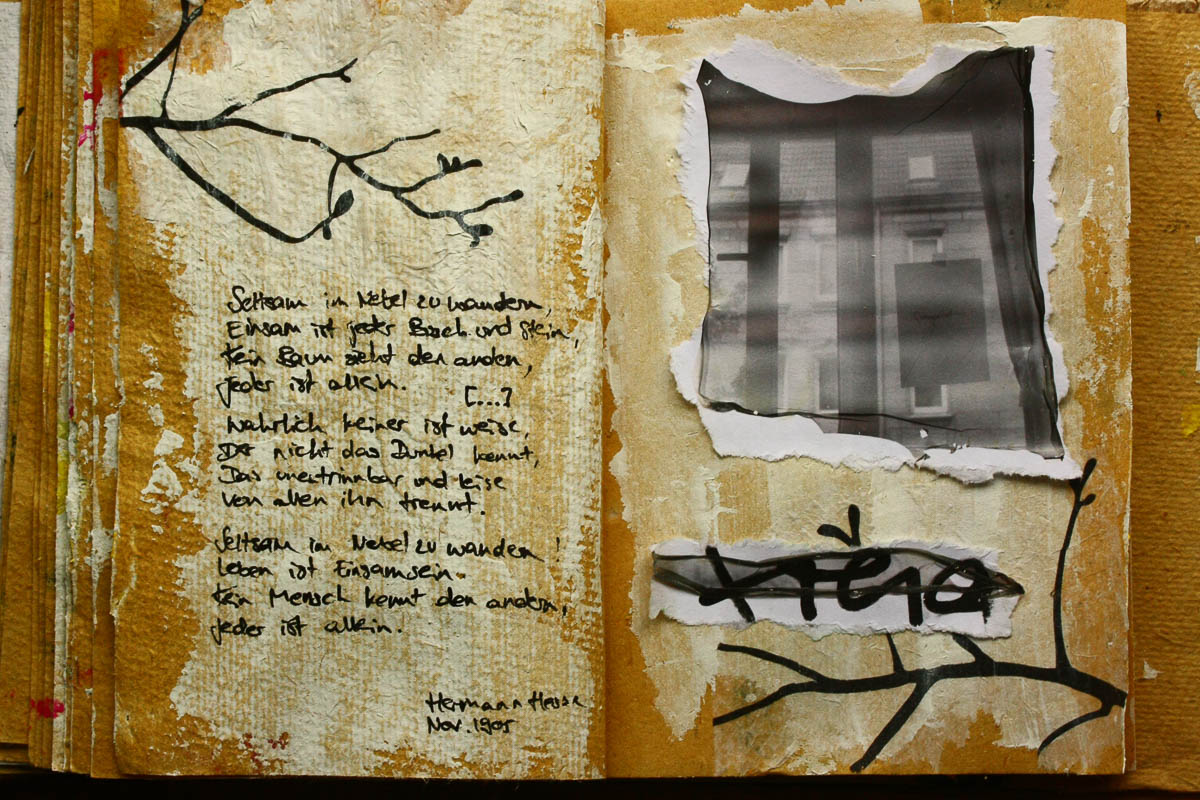 Seltsam im Nebel zu wandern,
Einsam ist jeder Busch und Stein,
Kein Baum sieht den andern,
jeder ist allein.
[...]
Wahrlich keiner ist weise,
Der nicht das Dunkel kennt,
Das unentrinnbar und leise
Von allen ihn trennt.
Seltsam im Nebel zu wandern!
Leben ist Einsamsein.
Kein Mensch kennt den andern,
jeder ist allein.
Hermann Hesse
Nov. 1905